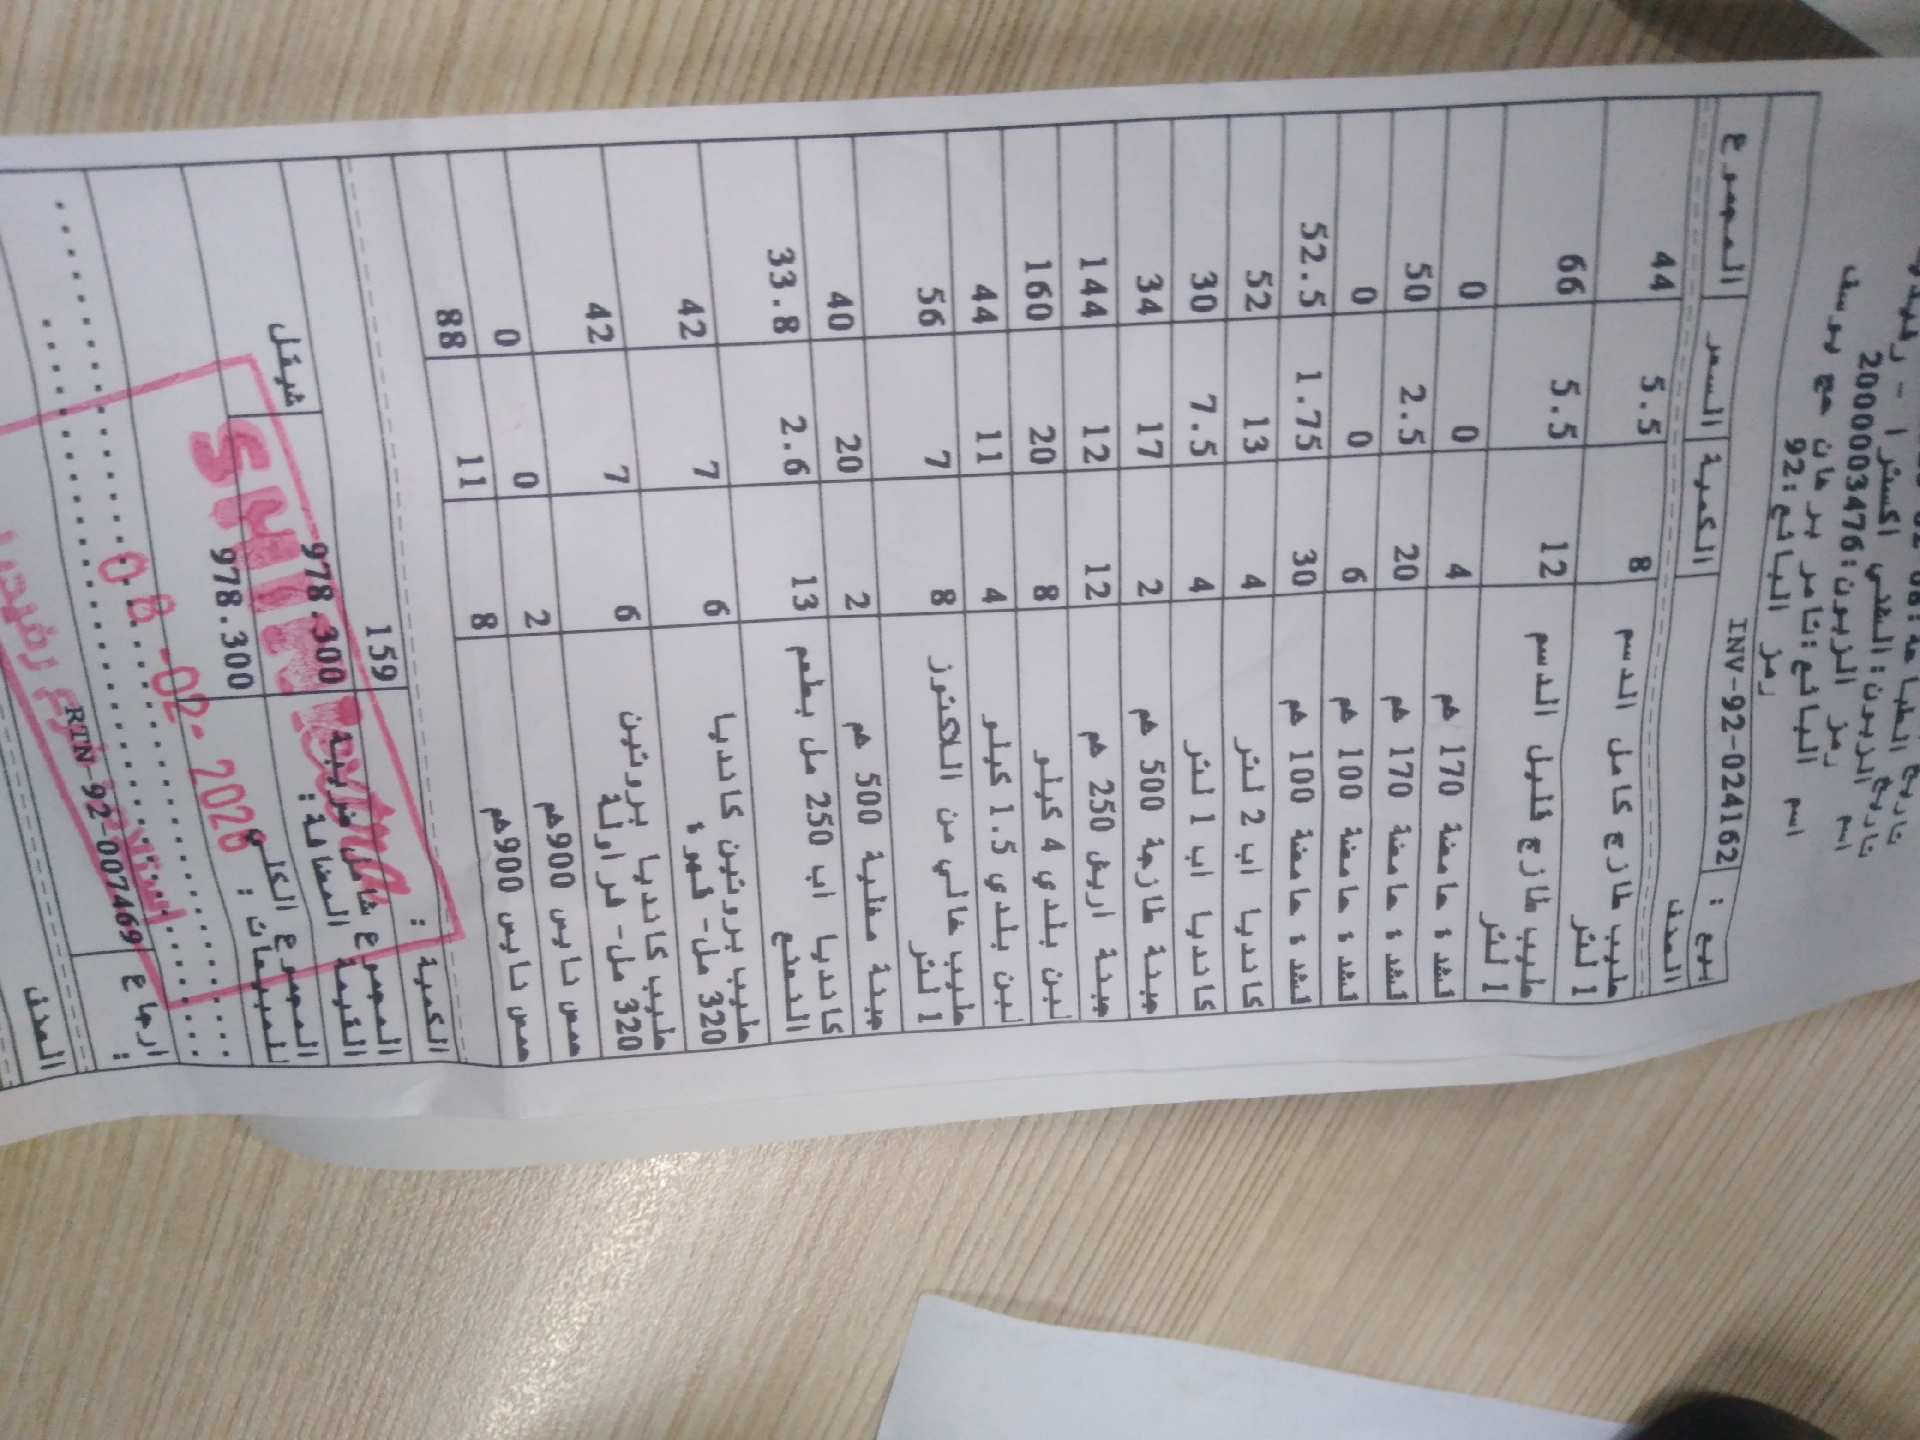 تاريخ الطباعة:08 02
تاريخ الزبون: الشني اكسترا - رفيديا
اسم
رمز الزبون:2000003476
اسم البائع: تامر برهان حج يوسف
رمز البائع:92
ابيع : INV-92-024162
الصنف الكمية السعر المجموع
حليب طازج كامل الدسم 1 لتر 8 5.5 44
حليب طازج قليل الدسم 1 لتر 12 5.5 66
قشدة حامضة 170 غم 4 0 0
قشدة حامضة 170 غم 20 2.5 50
قشدة حامضة 100 غم 6 0 0
قشدة حامضة 100 غم 30 1.75 52.5
كانديا اب 2 لتر 4 13 52
كانديا اب 1 لتر 4 7.5 30
جبنة طازجة 500 غم 2 17 34
جبنة اريش 250 غم 12 12 144
لبن بلدي 4 كيلو 8 20 160
لبن بلدي 1.5 كيلو 4 11 44
حليب خالي من اللاكتوز 1 لتر 8 7 56
جبنة مغلية 500 غم 2 20 40
كانديا اب 250 مل بطعم النعنع 13 2.6 33.8
حليب بروتين كانديا 320 مل- قهوة 6 7 42
حليب كانديا بروتين 320 مل- فراولة 6 7 42
حمص نايس 900غم 2 0 0
حمص نايس 900غم 8 11 88
الكمية : 159
المجموع شامل ضريبة القيمة المضافة: 978.300 شيقل
المجموع الكلي للمبيعات : 978.300
SHINI Extra
08 -02- 2026
ارجاع : RTN-92-007469
فرع رفيديا
الصنف